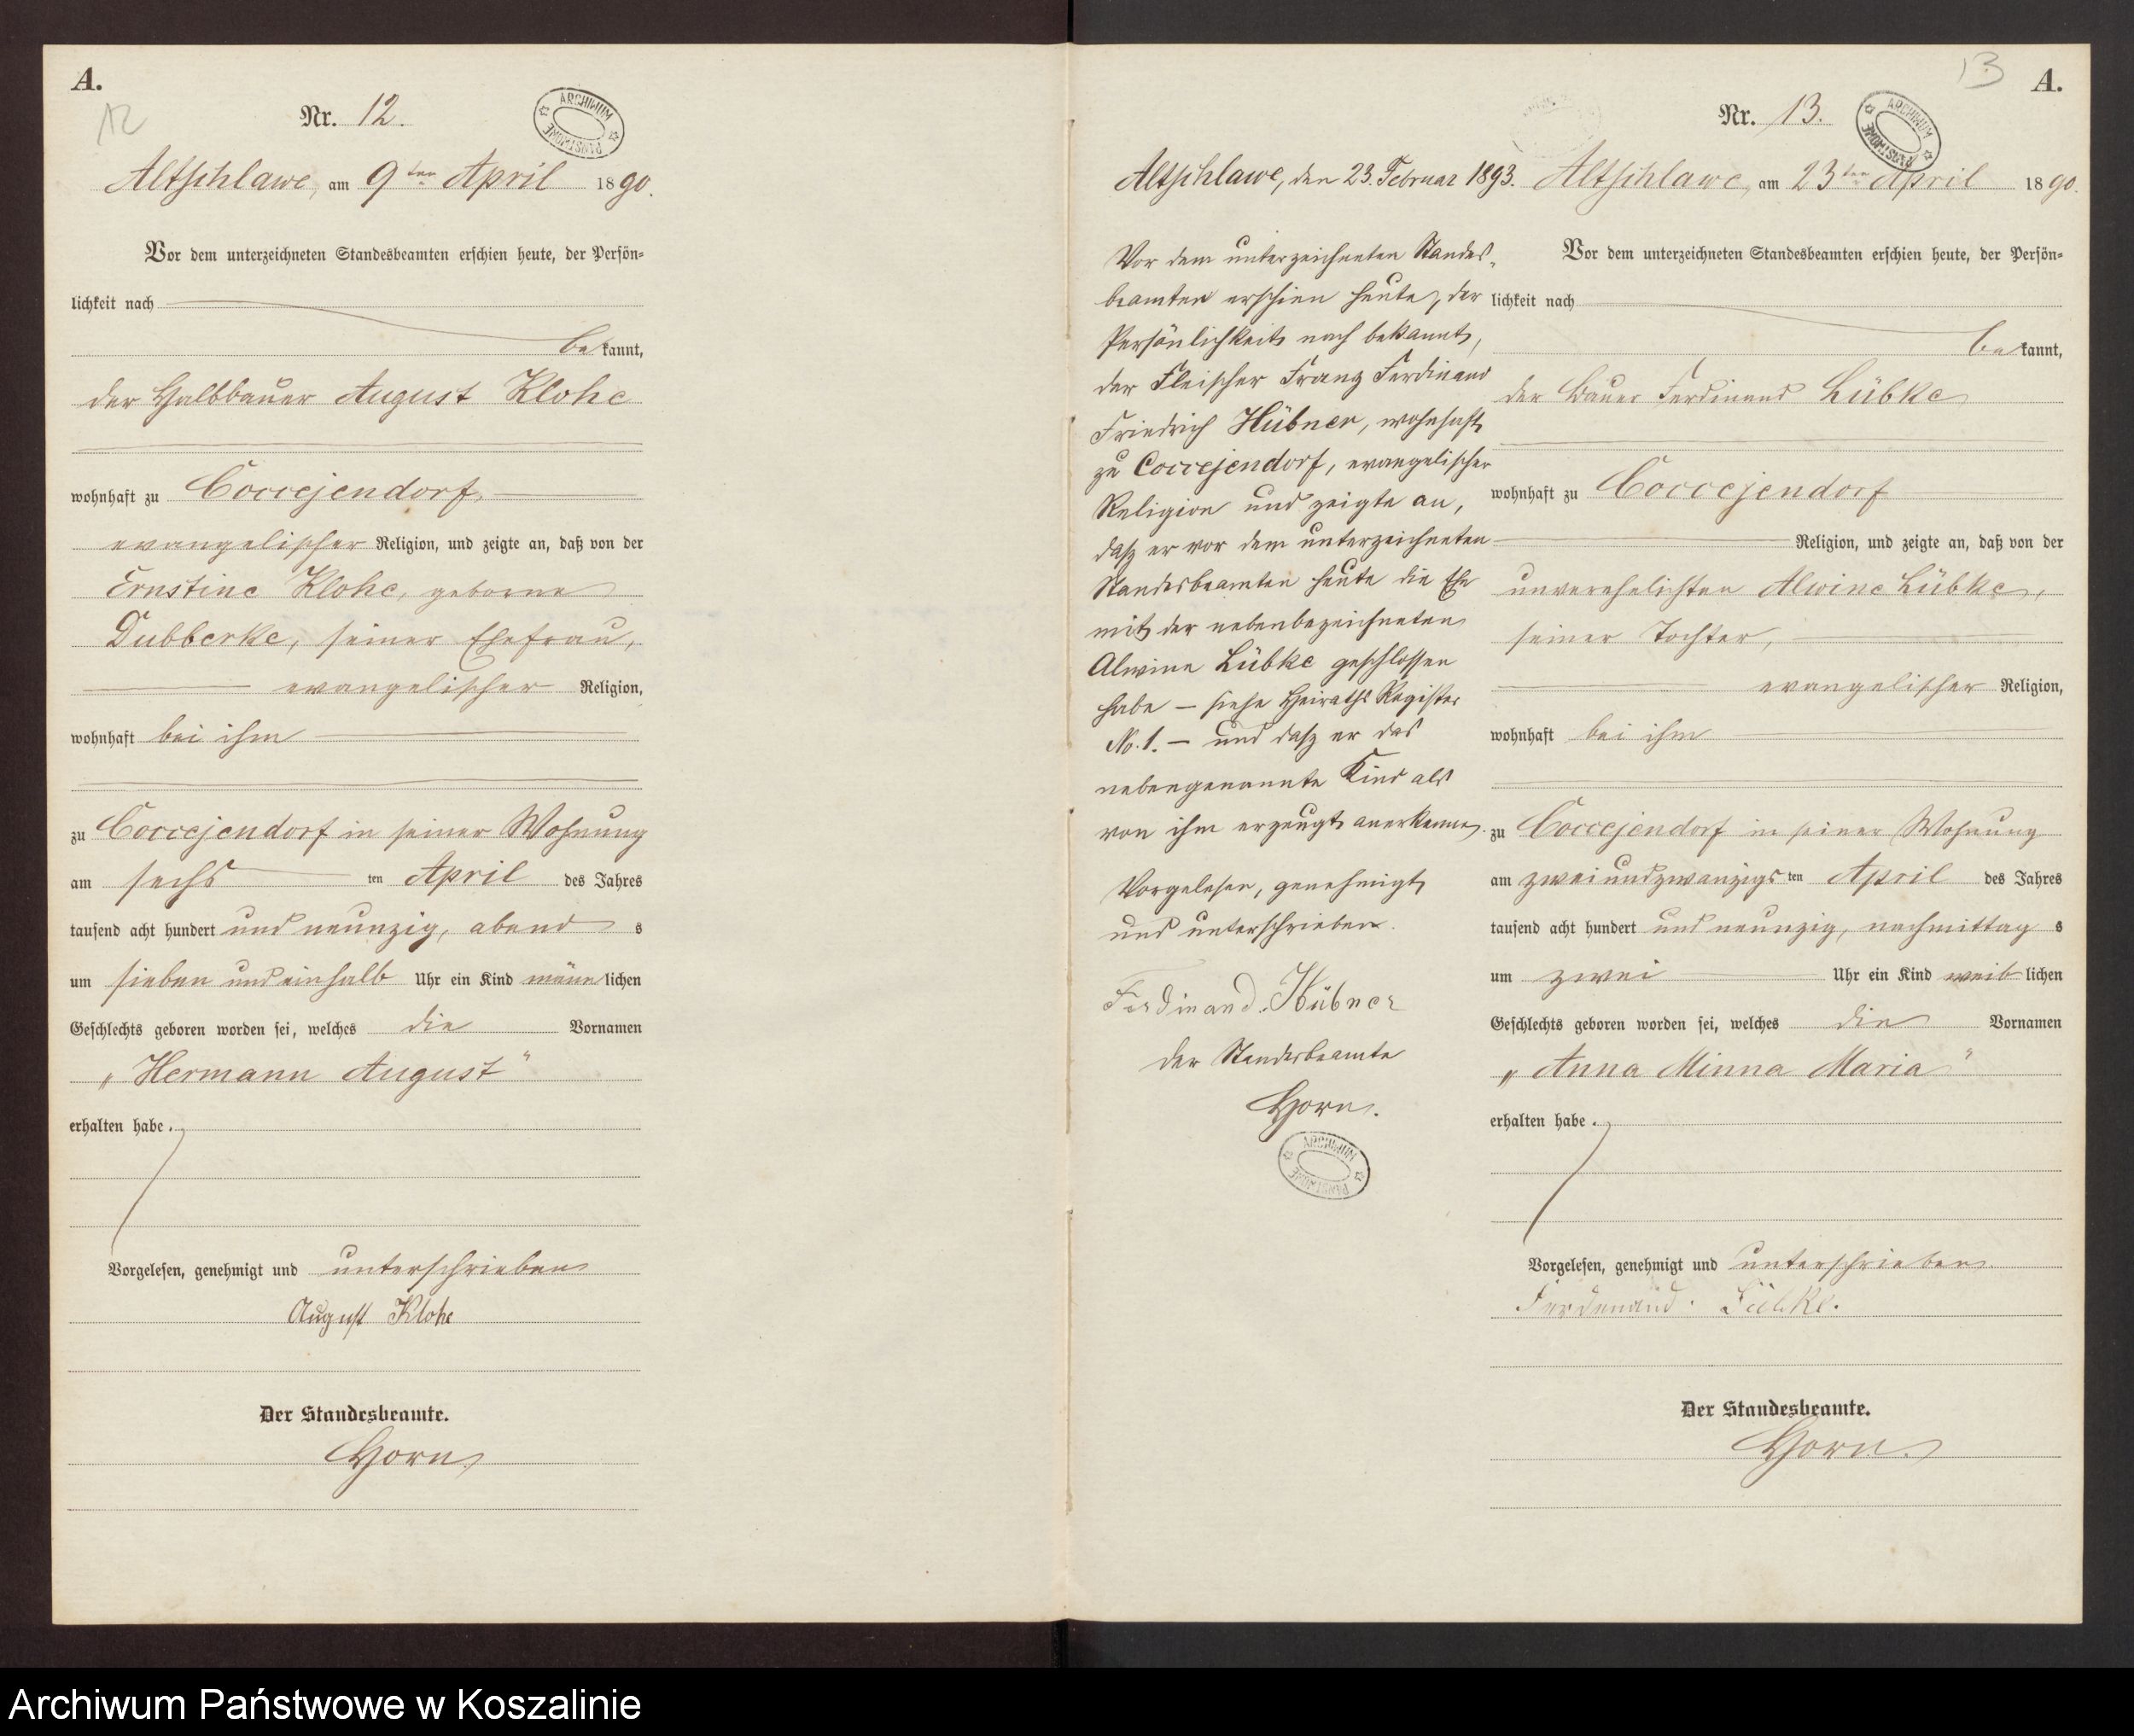 A.
12
Nr. 12.
ARCHIWUM PAŃSTWOWE
Altschlawe, am 9ten April 1890.
Vor dem unterzeichneten Standesbeamten erschien heute, der Persön-
lichkeit nach
bekannt,
der Halbbauer August Klohe
wohnhaft zu Coccejendorf,
evangelischer Religion, und zeigte an, daß von der
Ernstine Klohe, geborne
Dubberke, seiner Ehefrau,
evangelischer Religion,
wohnhaft bei ihm
zu Coccejendorf in seiner Wohnung
am sechs ten April des Jahres
tausend acht hundert und neunzig, abend s
um sieben und einhalb Uhr ein Kind männlichen
Geschlechts geboren worden sei, welches die Vornamen
„Hermann August"
erhalten habe.
Vorgelesen, genehmigt und unterschrieben
August Klohe
Der Standesbeamte.
Horn.
Altschlawe, den 23. Februar 1893.
Vor dem unterzeichneten Standes-
beamten erschien heute, der
Persönlichkeit nach bekannt,
der Fleischer Franz Ferdinand
Friedrich Hübner, wohnhaft
zu Coccejendorf, evangelischer
Religion und zeigte an,
dasz er vor dem unterzeichneten
Standesbeamten heute die Ehe
mit der nebenbezeichneten
Alwine Lübke geschlossen
habe – siehe Heiraths Register
No. 1. – und dasz er das
nebengenannte Kind als
von ihm erzeugt anerkenne.
Vorgelesen, genehmigt
und unterschrieben.
Ferdinand. Hübner
der Standesbeamte
Horn.
ARCHIWUM PAŃSTWOWE
13
A.
Nr. 13.
ARCHIWUM PAŃSTWOWE
Altschlawe, am 23ten April 1890.
Vor dem unterzeichneten Standesbeamten erschien heute, der Persön-
lichkeit nach
bekannt,
der Bauer Ferdinand Lübke
wohnhaft zu Coccejendorf
Religion, und zeigte an, daß von der
unverehelichten Alwine Lübke,
seiner Tochter,
evangelischer Religion,
wohnhaft bei ihm
zu Coccejendorf in seiner Wohnung
am zweiundzwanzigs ten April des Jahres
tausend acht hundert und neunzig, nachmittag s
um zwei Uhr ein Kind weiblichen
Geschlechts geboren worden sei, welches die Vornamen
„Anna Minna Maria"
erhalten habe.
Vorgelesen, genehmigt und unterschrieben.
Ferdenand. Lübke.
Der Standesbeamte.
Horn.
Archiwum Państwowe w Koszalinie